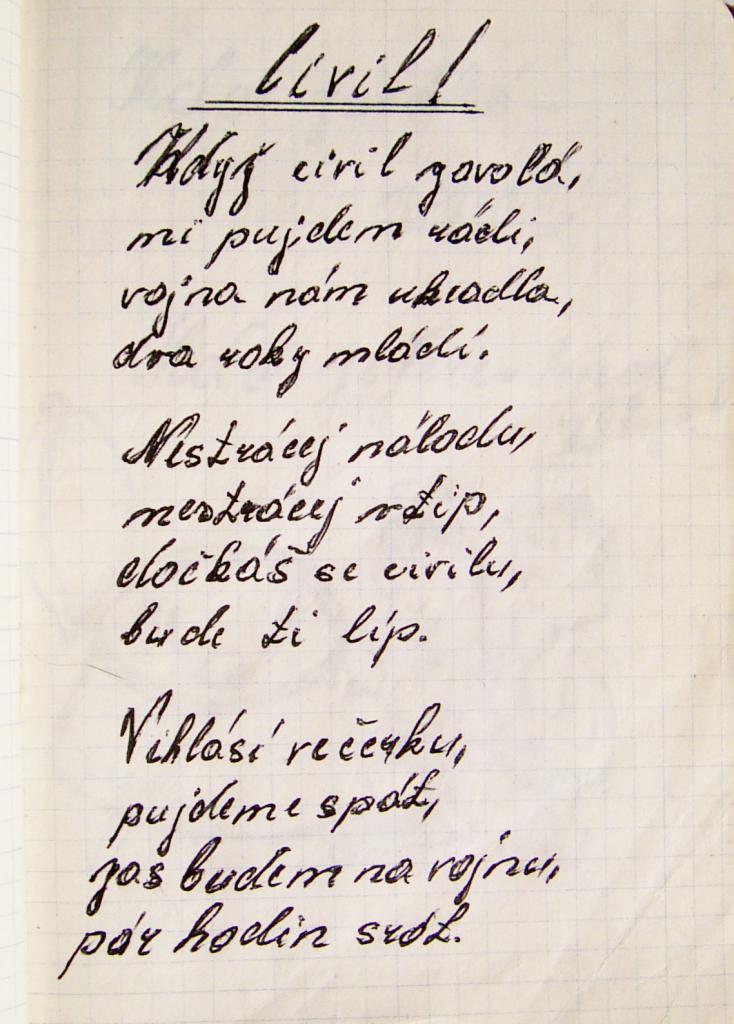 Civil!
Když civil zavolá,
mi pujdem rádi,
vojna nám ukradla,
dva roky mládí.
Nestrácej náladu,
nestrácej vtip,
dočkáš se civilu,
bude ti líp.
Vihlásí večerku,
pujdeme spát,
zas budem na vojnu,
pár hodin srát.